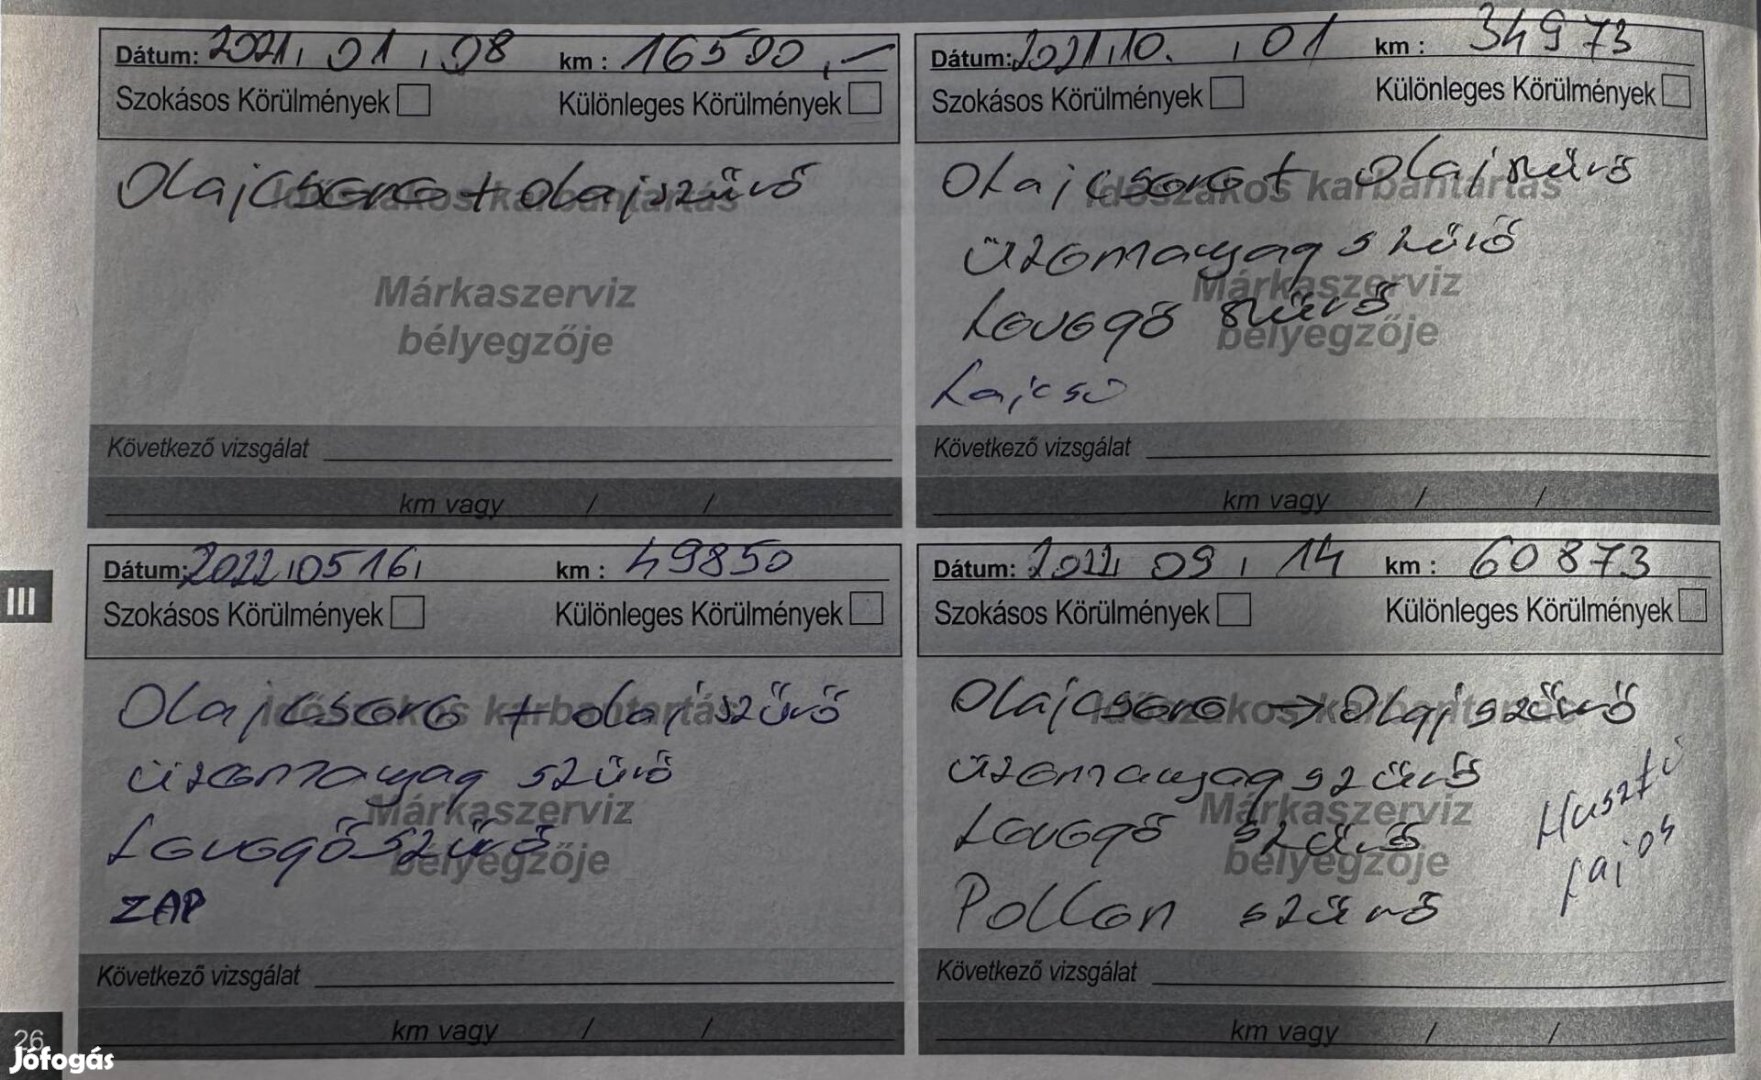 Dátum: 2021, 01, 08 km : 16500,-
Szokásos Körülmények Különleges Körülmények
Időszakos karbantartás
Olajcsere + olajszűrő
Márkaszerviz
bélyegzője
Következő vizsgálat
km vagy / /
Dátum: 2021, 10. , 01 km : 34973
Szokásos Körülmények Különleges Körülmények
Időszakos karbantartás
Olajcsere + olajszűrő
üzemanyag szűrő
Márkaszerviz
Levegő szűrő
bélyegzője
Lajcsi
Következő vizsgálat
km vagy / /
Dátum: 2022,05 16, km : 49850
Szokásos Körülmények Különleges Körülmények
Időszakos karbantartás
Olajcsere + olajszűrő
üzemanyag szűrő
Márkaszerviz
Levegőszűrő
bélyegzője
ZAP
Következő vizsgálat
km vagy / /
Dátum: 2022, 09, 14 km : 60873
Szokásos Körülmények Különleges Körülmények
Időszakos karbantartás
Olajcsere → Olajszűrő
üzemanyag szűrő
Márkaszerviz
Levegő szűrő
bélyegzője
Pollen szűrő
Huszti
Lajos
Következő vizsgálat
km vagy / /
III
26
Jófogás